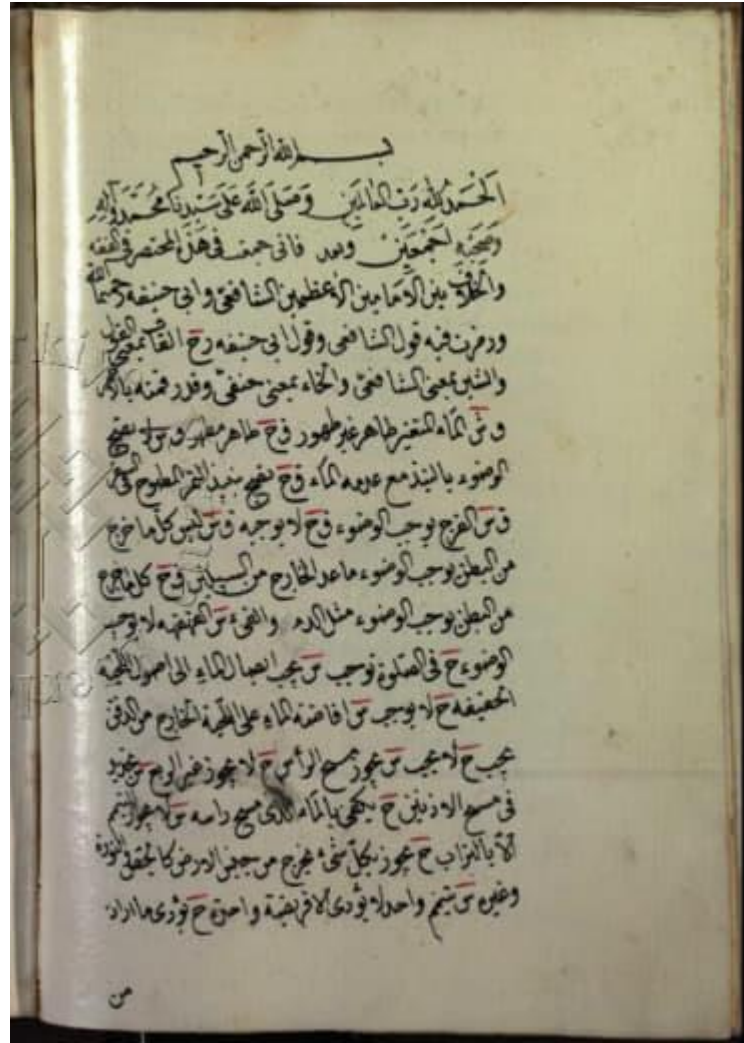 بسم الله الرحمن الرحيم
الحمد لله رب العالمين وصلى الله على سيدنا محمد وآله
وصحبه اجمعين وبعد فانى جمعت فى هذا المختصر فى الفقه
والخلاف بين الامامين الأعظمين الشافعى وابى حنيفه رحمهما الله
ورمزت فيه قول الشافعى وقول ابى حنيفه رح القاف بمعنى القول
والشين بمعنى الشافعى والخاء بمعنى حنفى وقدر قمته بالاحمر
ق ش الماء المتغير طاهر غير طهور ق ح طاهر مطهر ق ش لا يصح
الوضوء بالنبذ مع عدمه الماء ق ح يصح بنبيذ التمر المطبوخ فى السفر
ق ش الفرج يوجب الوضوء ق ح لا يوجبه ق ش ليس كل ما خرج
من البطن يوجب الوضوء ما عدا الخارج من السبيلين ق ح كل ما خرج
من البطن يوجب الوضوء مثل الدم والقىء ش القهقهه لا يوجب
الوضوء ح فى الصلوة توجب ش يجب ايصال الماء الى اصول اللحية
الخفيفه ح لا يوجب ش افاضة الماء على اللحية الخارج من الذقن
يجب ح لا يجب ش يجوز مسح الرأس ح لا يجوز غير الربع ش
فى مسح الاذنين ح يكفى بالماء الذى مسح راسه ش لا يجوز التيمم
الا بالتراب ح يجوز بكل شىء يخرج من جنس الارض كالجص والنورة
وغيره ش تيمم واحد لا يؤدى الا فريضة واحدة ح يؤدى ما اراد
من